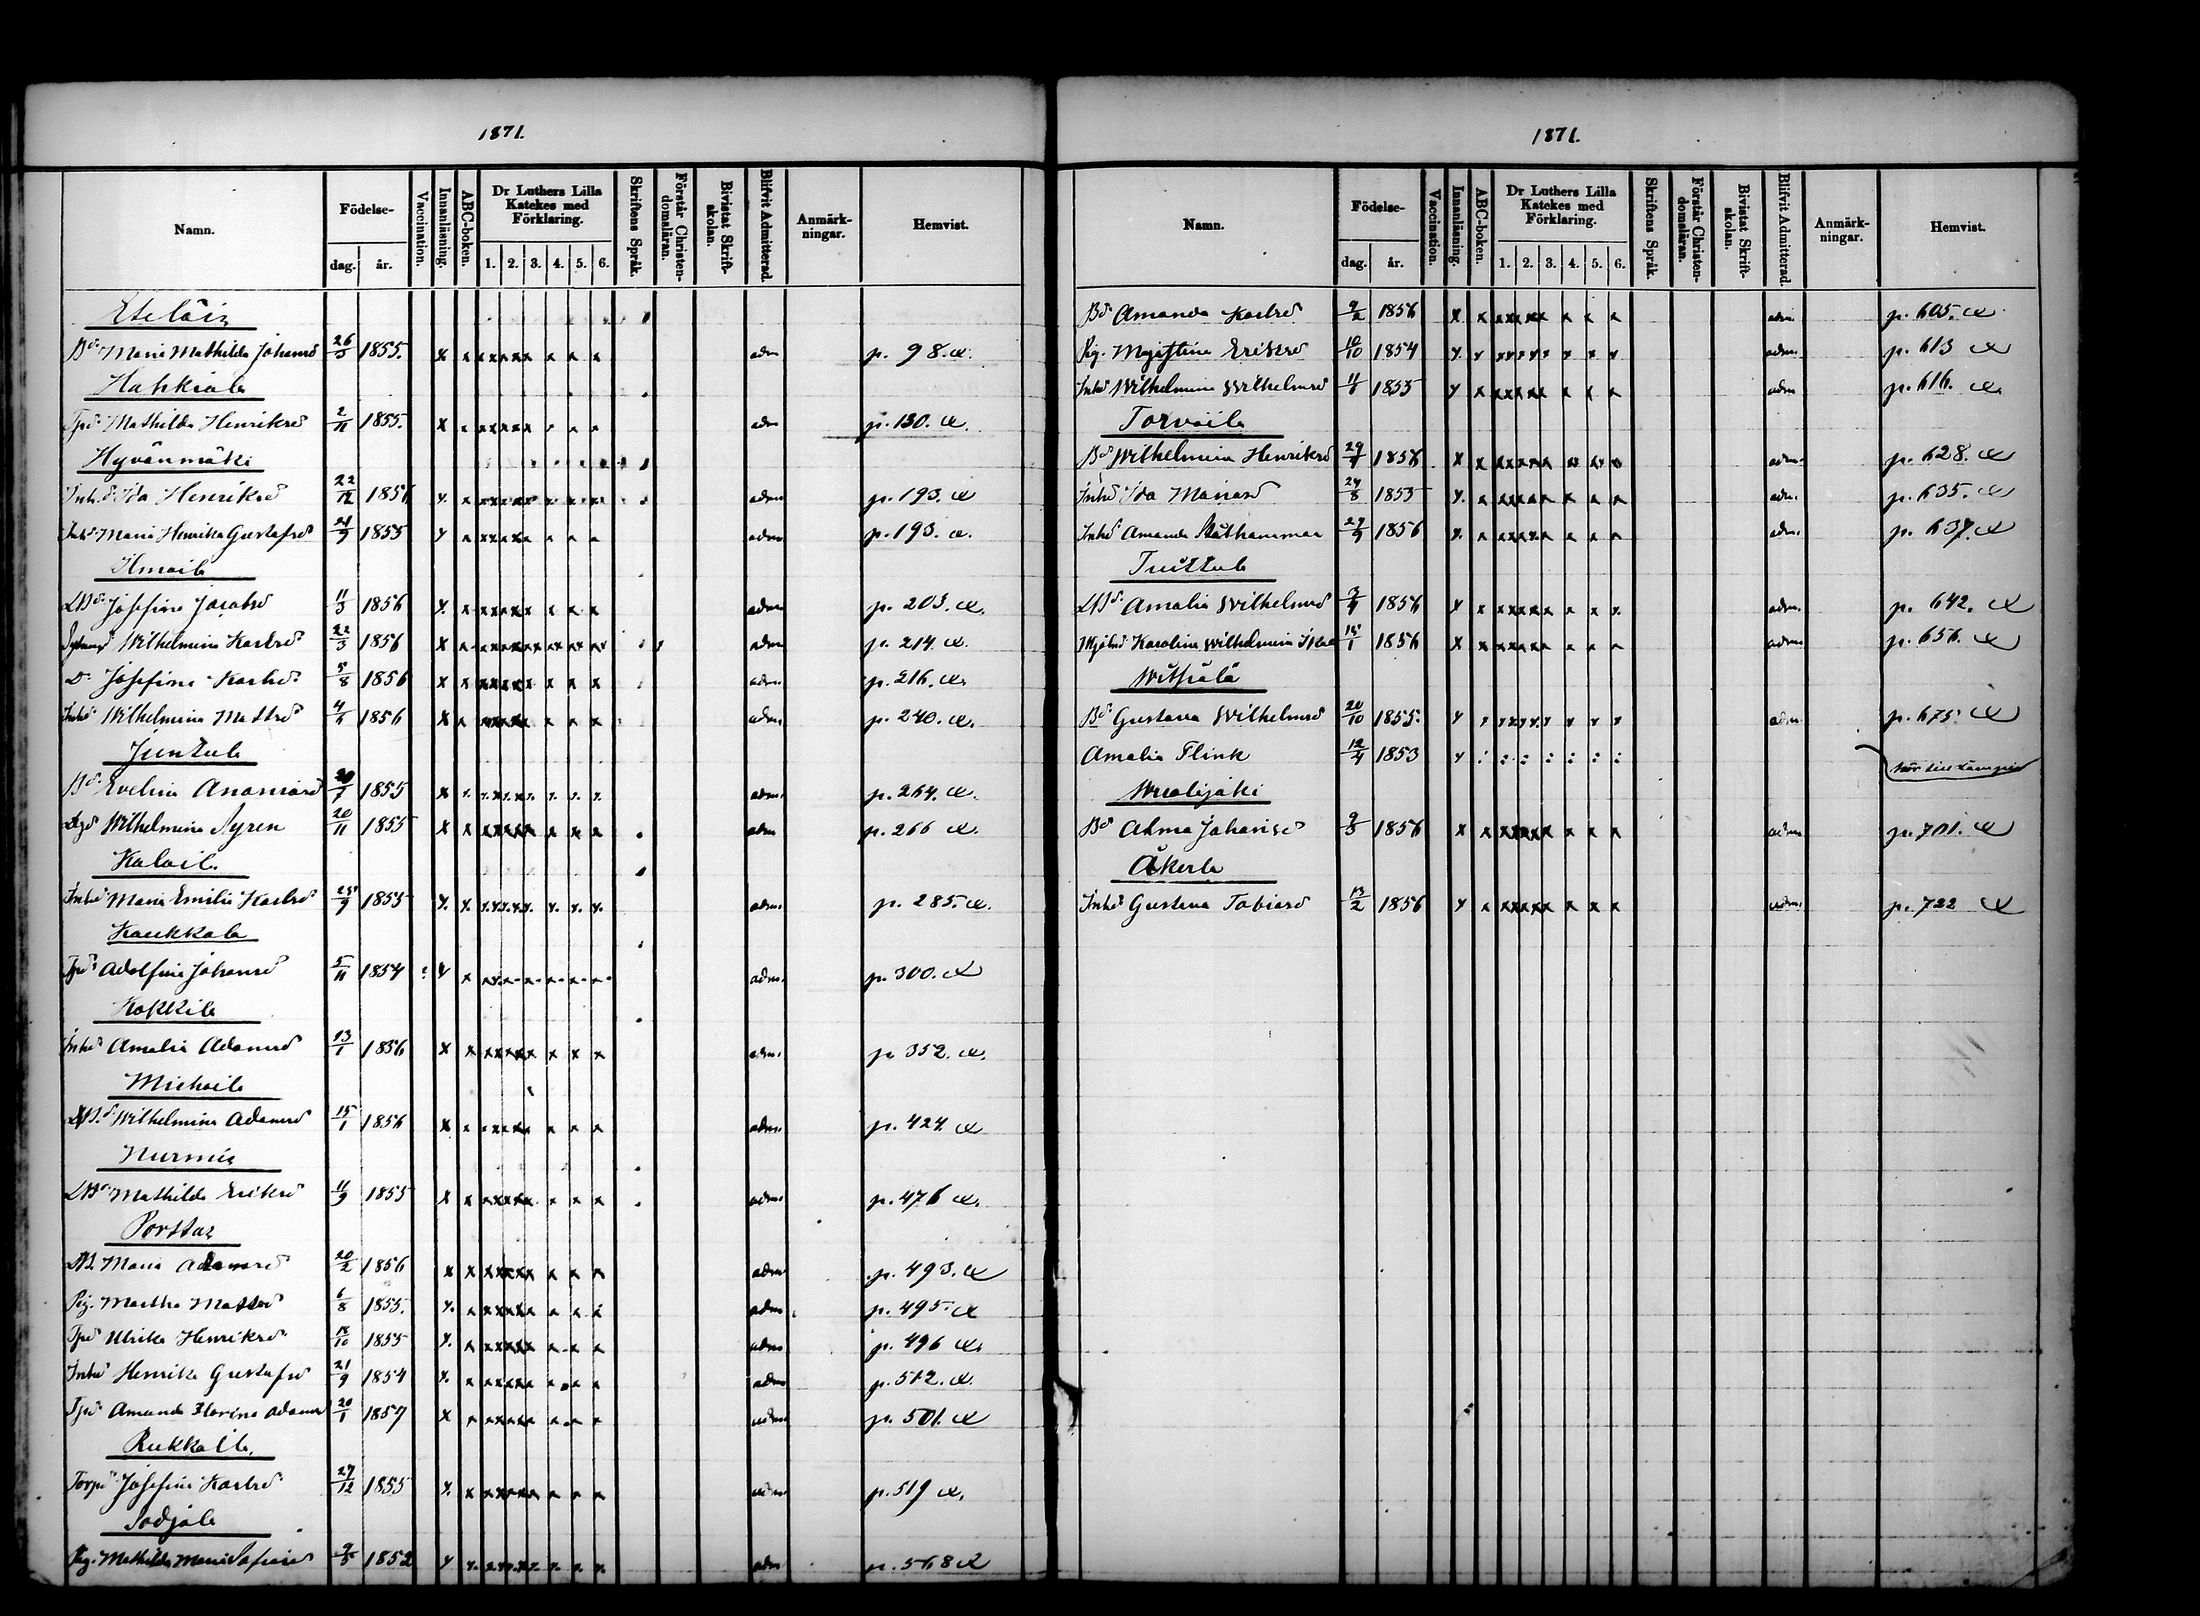 1871.
Namn. Födelse- dag. år. Vaccination. Innanläsning. ABC-boken. Dr Luthers Lilla Katekes med Förklaring. 1. 2. 3. 4. 5. 6. Skriftens Språk. Förstår Christendomsläran. Bivistat Skriftskolan. Blifvit Admitterad. Anmärkningar. Hemvist.
Eteläis
Bd. Maria Mathilda Johansd 26/3 1855. x x x x x x x x x x adm p. 98. a.
Hahkiala
Tpd Mathilda Henriksd 2/11 1855. x x x x x x x x x x adm p. 130. a.
Hyvänmäki
Inhd Ida Henriksd 22/12 1856 x x x x x x x x x x adm p. 193. a
Inhd Maria Henrika Gustafsd 21/9 1855 x x x x x x x x x x adm p. 193. a.
Ilmoila
LBd Josefina Jacobsd 11/3 1856 x x x x x x x x x x adm p. 203. a.
Wilhelmina Karlsd 22/3 1856 x x x x x x x x x x adm p. 214. a.
D. Josefina Karlsd 5/8 1856 x x x x x x x x x x adm p. 216. a.
Inhd Wilhelmina Mattsd 4/6 1856 x x x x x x x x x x adm p. 240. a.
Juntula
Bd. Evelina Ananiasd 20/7 1855 x x x x x x x x x x adm. p. 264. a.
Wilhelmina Syren 20/11 1855 x x x x x x x x x x adm p. 266 a.
Kaloila
Inhd Maria Emilia Karlsd 25/9 1855 x x x x x x x x x x adm. p. 285. a.
Kaukkala
Tpd Adolfina Johansd 5/11 1854 : x x x x x x x x x x adm. p. 300. a
Kokkila
Inhd Amalia Adamsd 13/1 1856 x x x x x x x x x x adm. p 352. a.
Michoila
LBd. Wilhelmina Adamsd 15/1 1856 x x x x x x x x x x adm. p. 424. a
Nurmis
LBd Mathilda Eriksd 11/9 1855 x x x x x x x x x x adm. p. 476 a.
Porttas
LB Maria Adamsd 20/2 1856 x x x x x x x x x x adm p. 493. a
Pig. Martha Mattsd 6/8 1855. x x x x x x x x x x adm p. 495. a
Tpd Ulrika Henriksd 18/10 1855 x x x x x x x x x x adm p. 496 a.
Inhd Henrika Gustafsd 21/9 1854 x x x x x x x x x x adm p. 512. a.
Tpd Amanda Florina Adamsd 20/1 1857 x x x x x x x x x x adm p. 501. a
Rukkoila
Torpd Josefina Karlsd 27/12 1855 x x x x x x x x x x adm p. 519 a.
Sodjala
Pig. Mathilda Maria 9/5 1852 x x x x x x x x x x adm p. 568 a
1871.
Namn. Födelse- dag. år. Vaccination. Innanläsning. ABC-boken. Dr Luthers Lilla Katekes med Förklaring. 1. 2. 3. 4. 5. 6. Skriftens Språk. Förstår Christendomsläran. Bivistat Skriftskolan. Blifvit Admitterad. Anmärkningar. Hemvist.
Bd Amanda Karlsd 9/2 1856 x x x x x x x x x x adm. p. 605. a
Pig. Majastina Eriksd 10/10 1854 x x x x x x x x x x adm. p. 613 a
Inhd Wilhelmina Wilhelmsd 11/6 1855 x x x x x x x x x x adm p. 616. a.
Torvoila
Bd Wilhelmina Henriksd 29/4 1856 x x x x x x x x x x adm. p. 628. a
Inhd Ida Mariasd 24/8 1855 x x x x x x x x x x adm. p. 635. a
Inhd Amanda Stålhammar 27/9 1856 x x x x x x x x x x adm. p. 637. a
Tuittula
LBd. Amalia Wilhelmsd 3/4 1856 x x x x x x x x x x adm. p. 642. a
Karolina Wilhelmina 15/1 1856 x x x x x x x x x x adm. p. 656. a
Witsiälä
Bd Gustava Wilhelmsd 20/10 1855. x x x x x x x x x x adm. p. 675. a
Amalia Flink 12/4 1853 x : : : : : : :
Wralijoki
Bd Alma Johansd 9/3 1856 x x x x x x x x x x adm p. 701. a
Åkerla
Inhd Gustava Tobiasd 13/2 1856 x x x x x x x x x x adm. p. 722 a